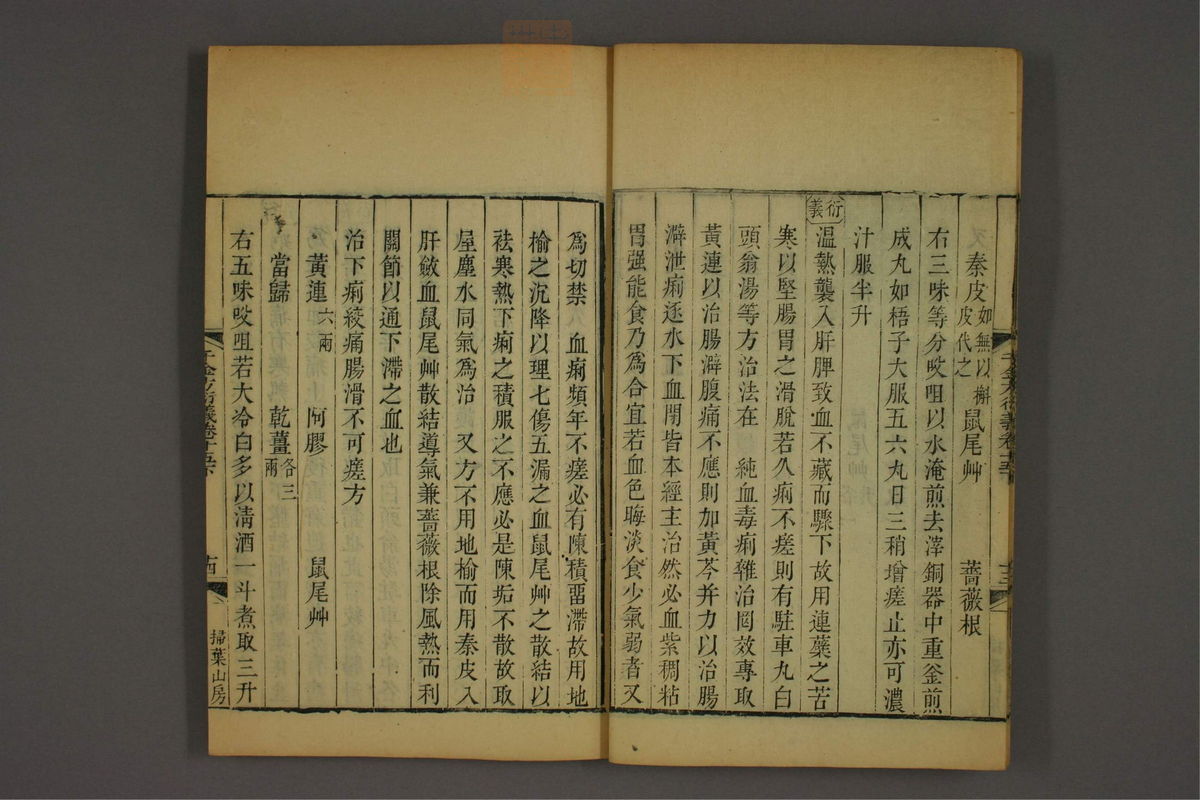 秦皮如無以槲皮代之 鼠尾艸 薔薇根
右三味等分㕮咀以水淹煎去滓銅器中重釜煎
成丸如梧子大服五六丸日三稍增瘥止亦可濃
汁服半升
衍義
溫熱襲入肝脾致血不藏而驟下故用連蘗之苦
寒以堅腸胃之滑脫若久痢不瘥則有駐車丸白
頭翁湯等方治法在 純血毒痢雜治罔效專取
黃連以治腸澼腹痛不應則加黃芩并力以治腸
澼泄痢逐水下血閉皆本經主治然必血紫稠粘
胃强能食乃爲合宜若血色晦淡食少氣弱者又
爲切禁 血痢頻年不瘥必有陳積畱滯故用地
榆之沉降以理七傷五漏之血鼠尾艸之散結以
祛寒熱下痢之積服之不應必是陳垢不散故取
屋塵水同氣爲治 又方不用地榆而用秦皮入
肝斂血鼠尾艸散結導氣兼薔薇根除風熱而利
關節以通下滯之血也
治下痢絞痛腸滑不可瘥方
黃連六兩 阿膠 鼠尾艸
當歸 乾薑各三兩
右五味㕮咀若大冷白多以清酒一斗煮取三升
千金方衍義卷十五下 十四 掃葉山房